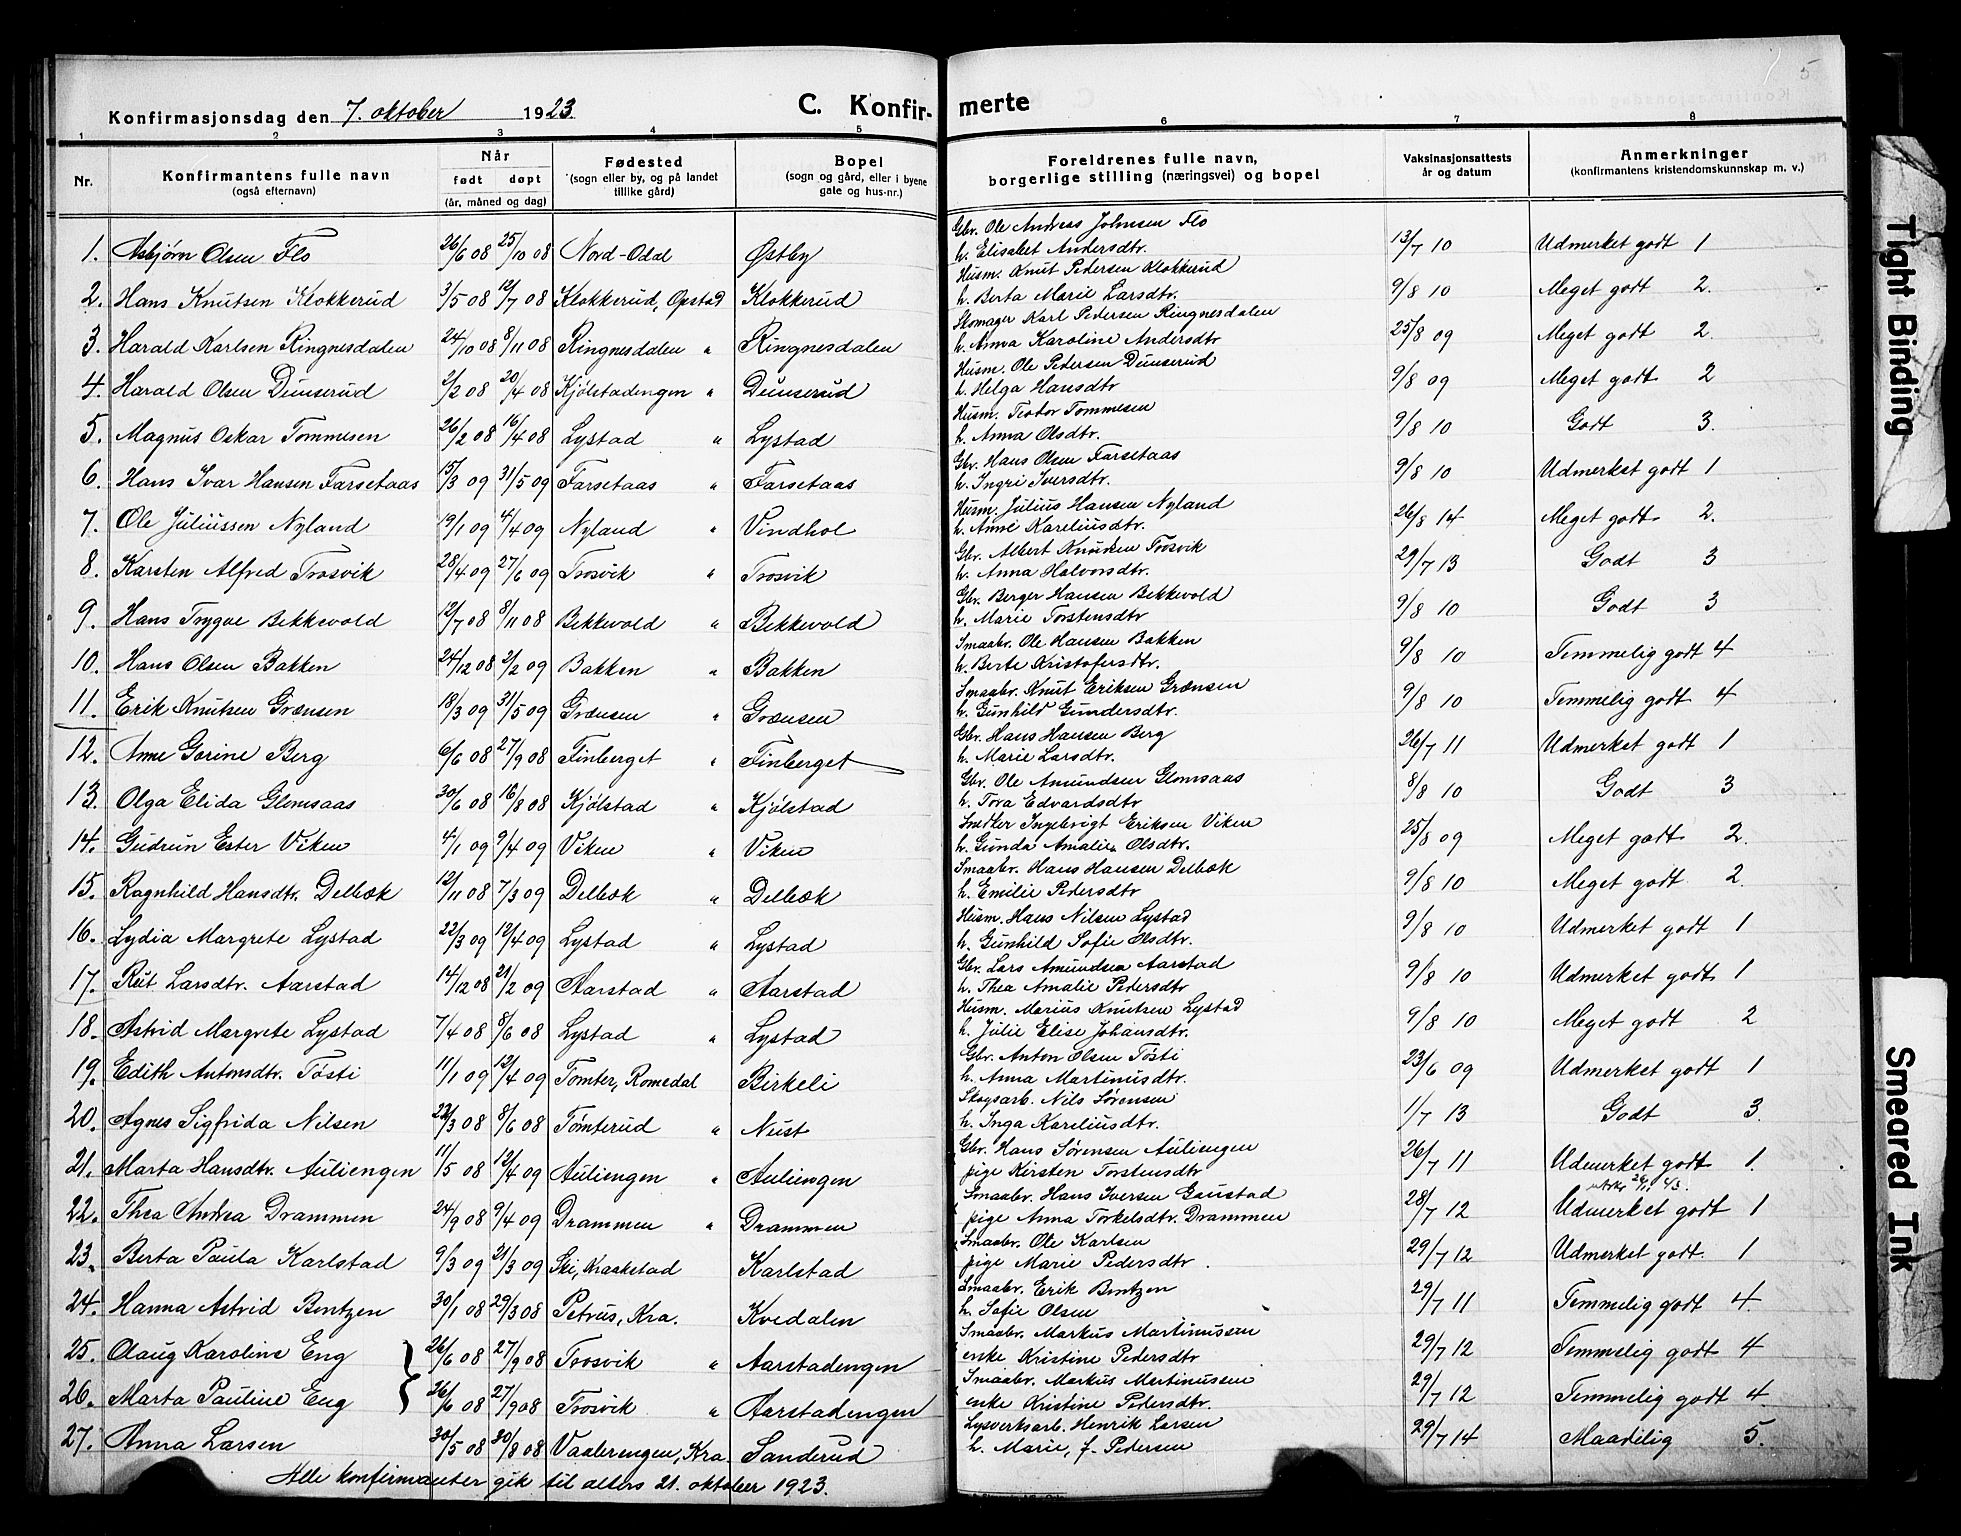 5
Konfirmasjonsdag den 7. oktober 1923 C. Konfir- merte
1 2 3 4 5 6 7 8
Nr. Konfirmantens fulle navn (også efternavn) Når født døpt (år, måned og dag) Fødested (sogn eller by, og på landet tillike gård) Bopel (sogn og gård, eller i byene gate og hus-nr.) Foreldrenes fulle navn, borgerlige stilling (næringsvei) og bopel Vaksinasjonsattests år og datum Anmerkninger (konfirmantens kristendomskunnskap m. v.)
1. Asbjørn Olsen Flo 26/6 08 25/10 08 Nord-Odal Østby Gbr. Ole Andreas Johnsen Flo h. Elisabet Andersdtr. 13/7 10 Udmerket godt 1
2. Hans Knutsen Klokkerud 3/5 08 12/7 08 Klokkerud, Opstad Klokkerud Husm. Knut Pedersen Klokkerud h. Berta Marie Larsdtr. 9/8 10 Meget godt 2.
3. Harald Karlsen Ringnesdalen 24/10 08 8/11 08 Ringnesdalen " Ringnesdalen Skomager Karl Pedersen Ringnesdalen h. Anna Karoline Andersdtr 25/8 09 Meget godt 2.
4. Harald Olsen Dunserud 2/2 08 20/4 08 Kjølstadengen " Dunserud Husm. Ole Pedersen Dunserud h. Helga Hansdtr 9/8 09 Meget godt 2
5. Magnus Oskar Tommesen 26/2 08 16/4 08 Lystad " Lystad Husm. Teodor Tommesen h. Anna Olsdtr. 9/8 10 Godt 3.
6. Hans Ivar Hansen Farsetaas 15/3 09 31/5 09 Farsetaas " Farsetaas Gbr. Hans Olsen Farsetaas h. Ingri Iversdtr. 9/8 10 Udmerket godt 1
7. Ole Juliussen Nyland 19/1 09 4/4 09 Nyland " Vindhol Husm. Julius Hansen Nyland h. Anne Kareliusdtr. 26/8 14 Meget godt 2.
8. Karsten Alfred Trosvik 28/4 09 27/6 09 Trosvik " Trosvik Gbr. Albert Knudsen Trosvik h. Anna Halvorsdtr. 29/7 13 Godt 3
9. Hans Trygve Bekkevold 12/7 08 8/11 08 Bekkevold " Bekkevold Gbr. Berger Hansen Bekkevold h. Marie Torstensdtr 9/8 10 Godt 3
10. Hans Olsen Bakken 24/12 08 2/2 09 Bakken " Bakken Smaabr. Ole Hansen Bakken h. Berte Kristofersdtr. 9/8 10 Temmelig godt 4
11. Erik Knutsen Grænsen 18/3 09 31/5 09 Grænsen " Grænsen Smaabr. Knut Eriksen Grænsen h. Gunhild Gundersdtr. 9/8 10 Temmelig godt 4
12. Anne Gorine Berg 6/6 08 27/9 08 Finberget " Finberget Gbr. Hans Hansen Berg h. Marie Larsdtr. 26/7 11 Udmerket godt 1
13. Olga Elida Glomsaas 30/6 08 16/8 08 Kjølstad " Kjølstad Gbr. Ole Amundsen Glomsaas h. Tora Edvardsdtr 8/8 10 Godt 3
14. Gudrun Ester Viken 4/1 09 9/4 09 Viken " Viken Snedker Ingebrigt Eriksen Viken h. Gunda Amalie Olsdtr. 25/8 09 Meget godt 2.
15. Ragnhild Hansdtr. Delbæk 12/11 08 7/3 09 Delbæk " Delbæk Smaabr. Hans Hansen Delbæk h. Emilie Pedersdtr 9/8 10 Meget godt 2.
16. Lydia Margrete Lystad 22/3 09 12/4 09 Lystad " Lystad Husm. Hans Nilsen Lystad h. Gunhild Sofie Olsdtr. 9/8 10 Udmerket godt 1
17. Rut Larsdtr. Aarstad 14/12 08 21/2 09 Aarstad " Aarstad Gbr. Lars Amundsen Aarstad h. Thea Amalie Pedersdtr 9/8 10 Udmerket godt 1
18. Astrid Margrete Lystad 7/4 08 8/6 08 Lystad " Lystad Husm. Marius Knutsen Lystad h. Julie Elise Johansdtr. 9/8 10 Meget godt 2
19. Edith Antonsdtr. Tøsti 11/1 09 12/4 09 Tomter, Romedal Birkeli Gbr. Anton Olsen Tøsti h. Anna Martinusdtr. 23/6 09 Udmerket godt 1
20. Agnes Sigfrida Nilsen 22/3 08 8/6 08 Tømterud " Nust Skogsarb. Nils Sørensen h. Inga Kareliusdtr. 1/7 13 Godt 3.
21. Marta Hansdtr. Auliengen 11/5 08 12/4 09 Auliengen " Auliengen Gbr. Hans Sørensen Auliengen pige Kirsten Torstensdtr 26/7 11 Udmerket godt 1.
22. Thea Andrea Drammen 24/9 08 9/4 09 Drammen " Drammen Smaabr. Hans Iversen Gaustad pige Anna Torkelsdtr. Drammen 28/7 12 Udmerket godt 1
23. Berta Paula Karlstad 9/3 09 21/3 09 Ski, Kraakstad Karlstad Smaabr. Ole Karlsen pige Marie Pedersdtr. 29/7 12 Udmerket godt. 1
24. Hanna Astrid Bentzen 30/1 08 29/3 08 Petrus, Kra. Kvedalen Smaabr. Erik Bentzen h. Sofie Olsen 29/7 11 Temmelig godt 4
25. Olaug Karoline Eng 26/6 08 27/9 08 Trosvik " Aarstadengen Smaabr. Markus Martinussen enke Kristine Pedersdtr 29/7 12 Temmelig godt 4
26. Marta Pauline Eng 26/6 08 27/9 08 Trosvik " Aarstadengen Smaabr. Markus Martinussen enke Kristine Pedersdtr. 29/7 12 Temmelig godt 4.
27. Anna Larsen 30/5 08 30/8 08 Vaalerengen, Kra. Sanderud Lysverksarb. Henrik Larsen h. Marie, f. Pedersen 29/7 14 Maadelig 5.
Alle konfirmanter gik til alters 21. oktober 1923.
Tight Binding
Smeared Ink